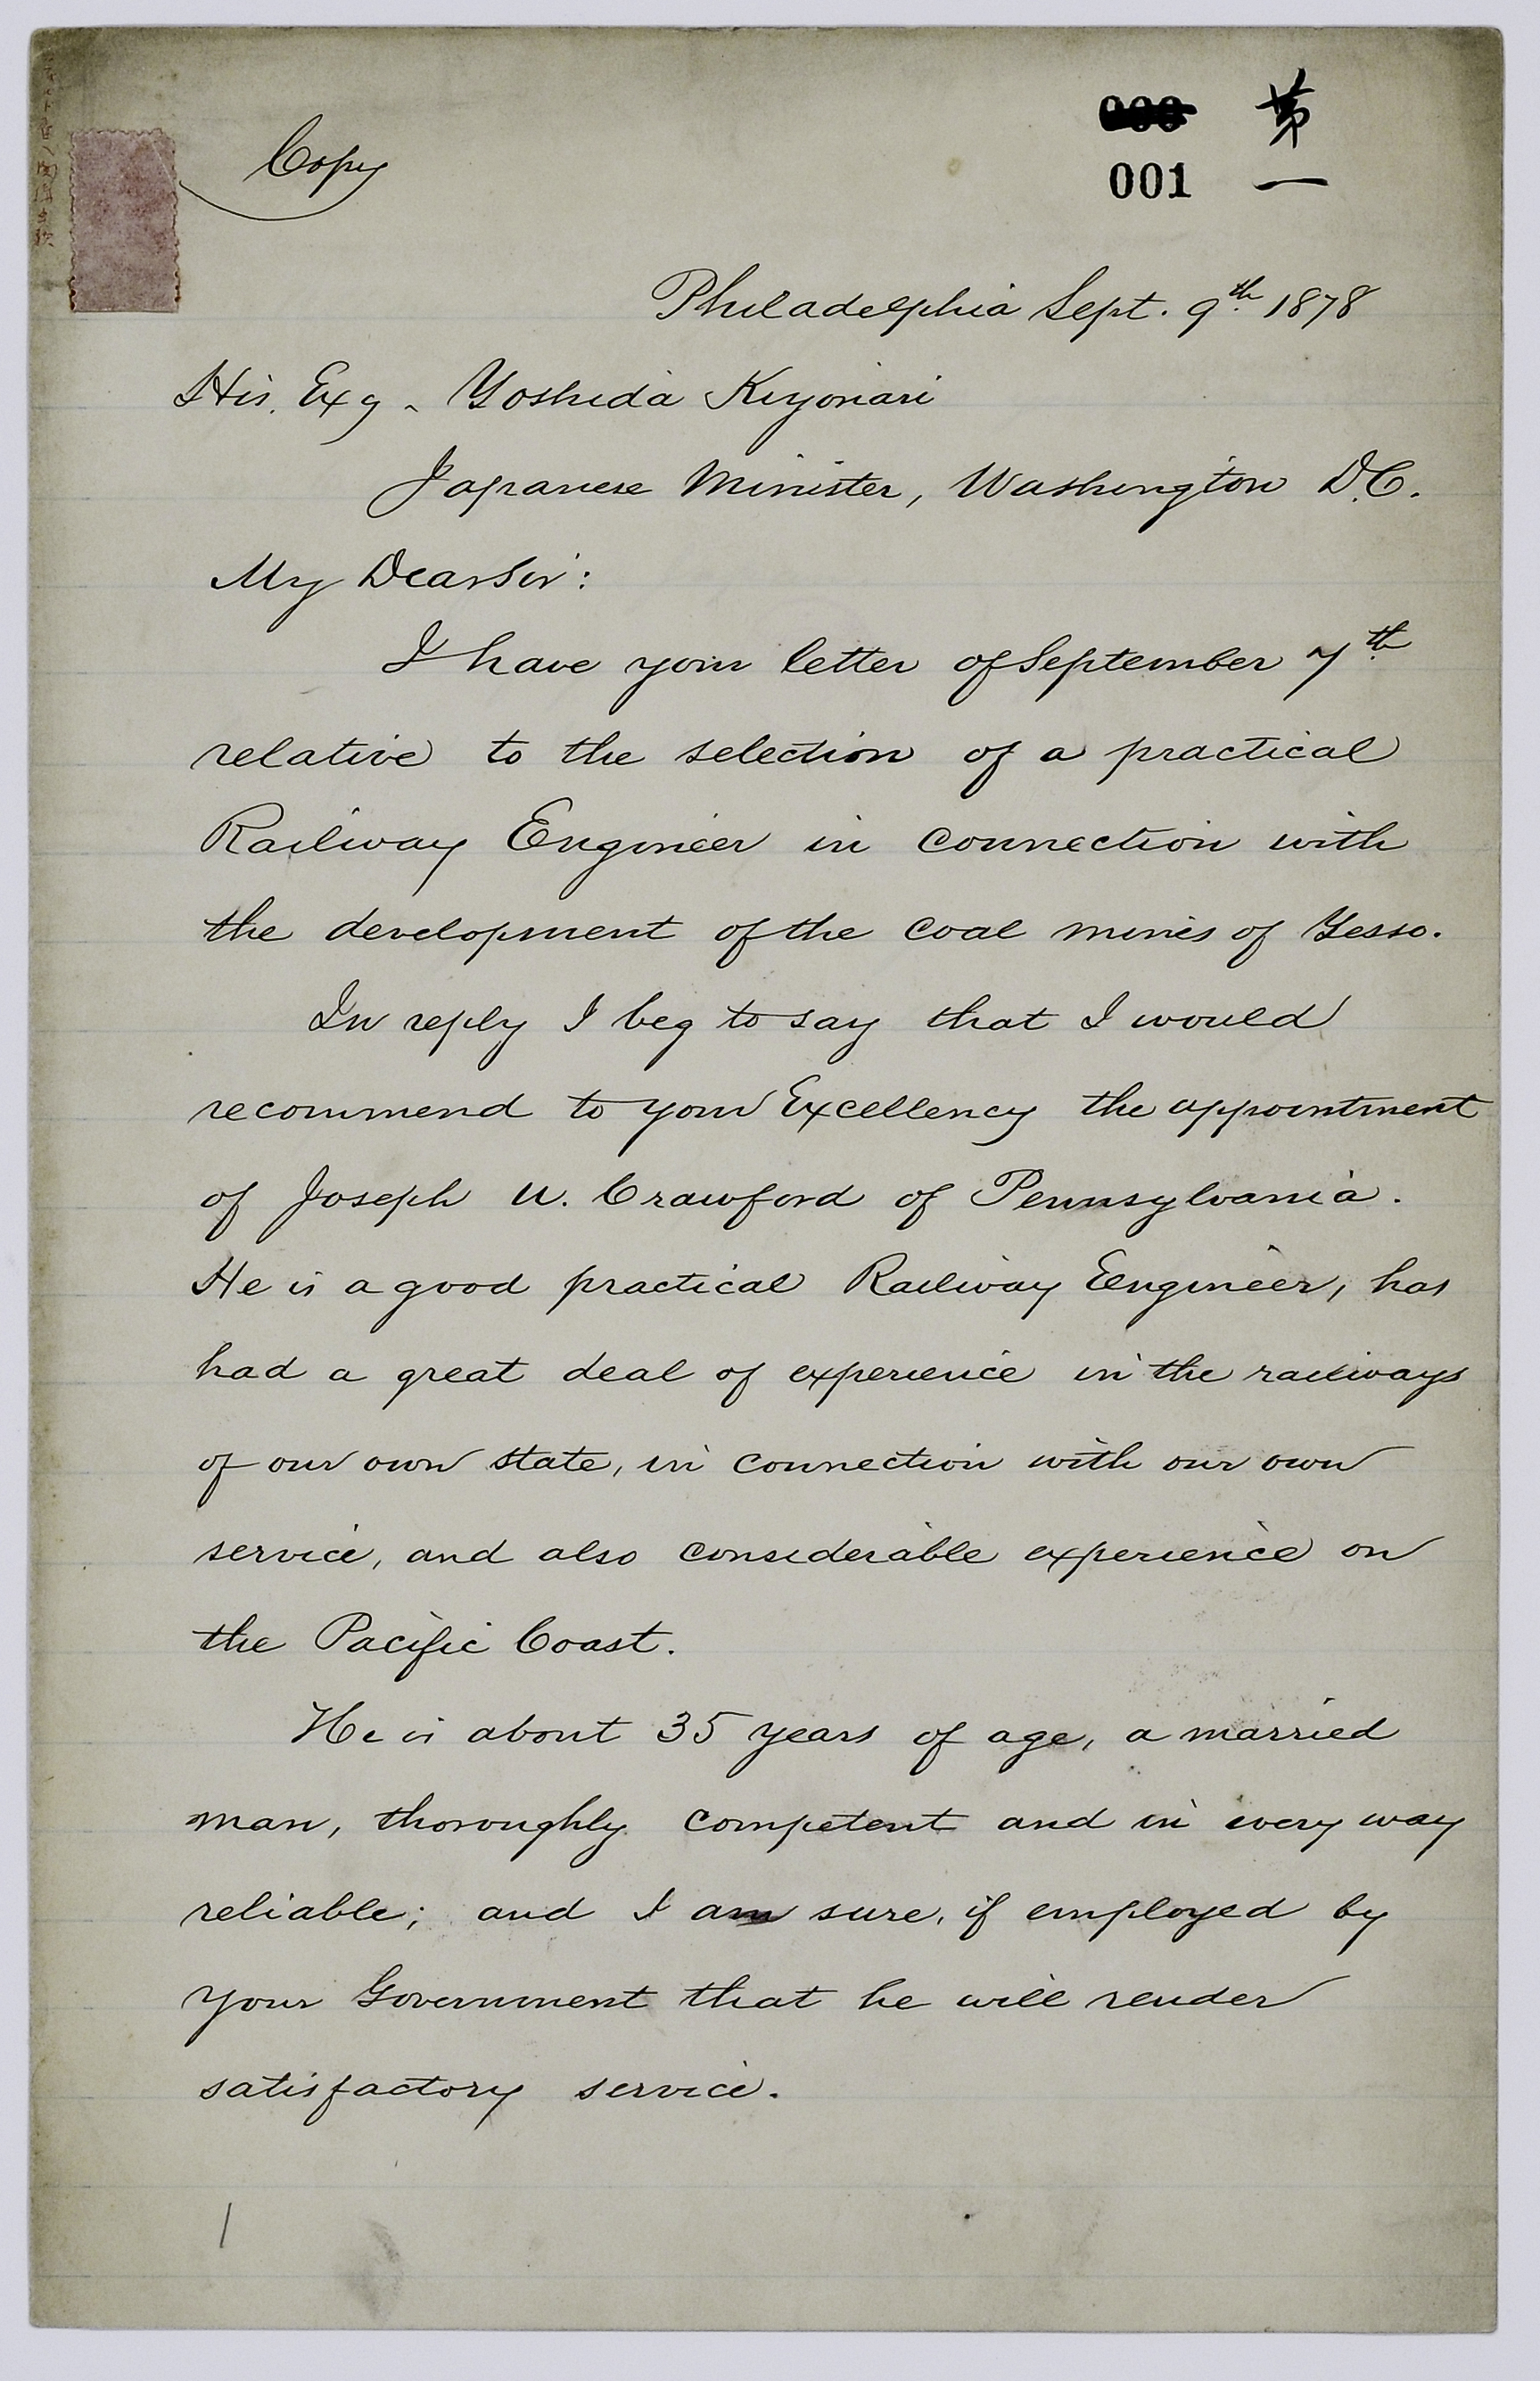 Copy
001
第一
Philadelphia Sept. 9th 1878
His. Exy - Yoshida Kiyonari
Japanese Minister, Washington D.C.
My Dear Sir:
I have your letter of September 7th
relative to the selection of a practical
Railway Engineer in connection with
the development of the coal mines of Yesso.
In reply I beg to say that I would
recommend to your Excellency the appointment
of Joseph U. Crawford of Pennsylvania.
He is a good practical Railway Engineer, has
had a great deal of experience in the railways
of our own state, in connection with our own
service, and also considerable experience on
the Pacific Coast.
He is about 35 years of age, a married
man, thoroughly competent and in every way
reliable; and I am sure, if employed by
your Government that he will render
satisfactory service.
1